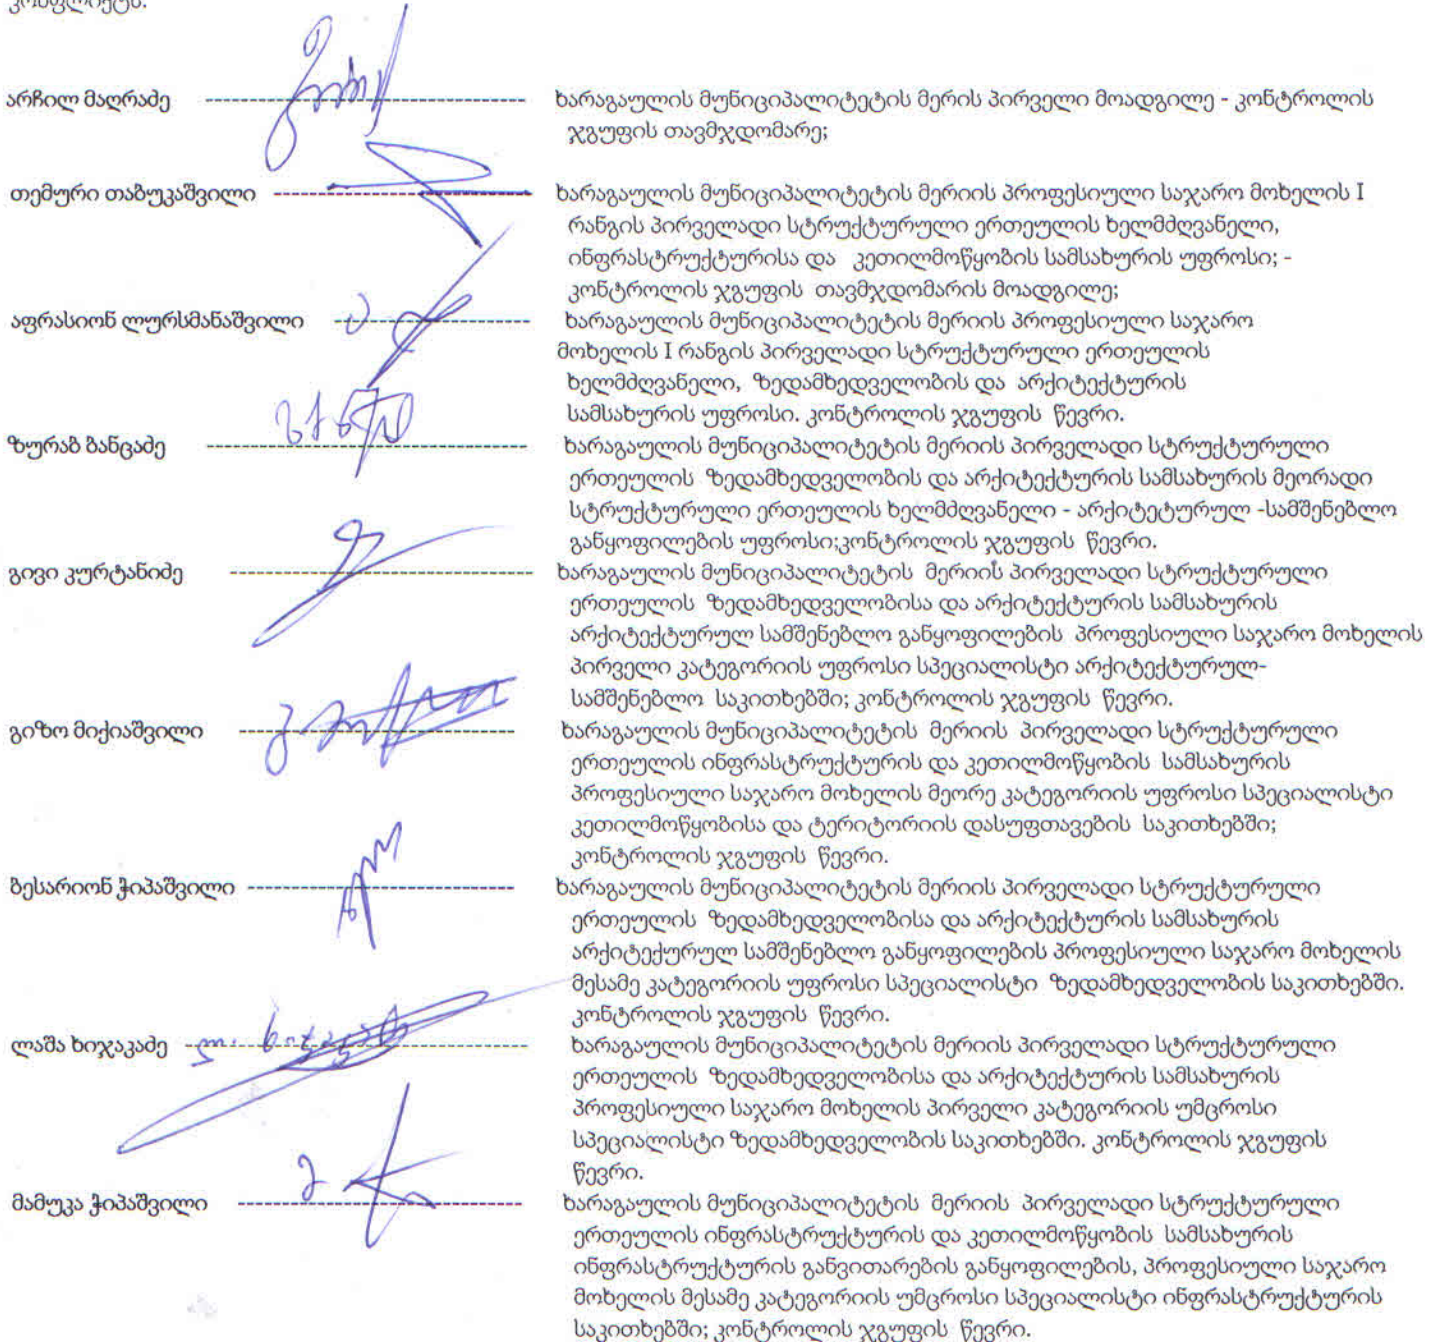 არჩილ მაღრაძე ხარაგაულის მუნიციპალიტეტის მერის პირველი მოადგილე - კონტროლის
ჯგუფის თავმჯდომარე;
თემური თაბუკაშვილი ხარაგაულის მუნიციპალიტეტის მერიის პროფესიული საჯარო მოხელის I
რანგის პირველადი სტრუქტურული ერთეულის ხელმძღვანელი,
ინფრასტრუქტურისა და კეთილმოწყობის სამსახურის უფროსი; -
კონტროლის ჯგუფის თავმჯდომარის მოადგილე;
აფრასიონ ლურსმანაშვილი ხარაგაულის მუნიციპალიტეტის მერიის პროფესიული საჯარო
მოხელის I რანგის პირველადი სტრუქტურული ერთეულის
ხელმძღვანელი, ზედამხედველობის და არქიტექტურის
სამსახურის უფროსი. კონტროლის ჯგუფის წევრი.
ზურაბ ბანცაძე ხარაგაულის მუნიციპალიტეტის მერიის პირველადი სტრუქტურული
ერთეულის ზედამხედველობის და არქიტექტურის სამსახურის მეორადი
სტრუქტურული ერთეულის ხელმძღვანელი - არქიტეტურულ -სამშენებლო
განყოფილების უფროსი;კონტროლის ჯგუფის წევრი.
გივი კურტანიძე ხარაგაულის მუნიციპალიტეტის მერიის პირველადი სტრუქტურული
ერთეულის ზედამხედველობისა და არქიტექტურის სამსახურის
არქიტექტურულ სამშენებლო განყოფილების პროფესიული საჯარო მოხელის
პირველი კატეგორიის უფროსი სპეციალისტი არქიტექტურულ-
სამშენებლო საკითხებში; კონტროლის ჯგუფის წევრი.
გიზო მიქიაშვილი ხარაგაულის მუნიციპალიტეტის მერიის პირველადი სტრუქტურული
ერთეულის ინფრასტრუქტურის და კეთილმოწყობის სამსახურის
პროფესიული საჯარო მოხელის მეორე კატეგორიის უფროსი სპეციალისტი
კეთილმოწყობისა და ტერიტორიის დასუფთავების საკითხებში;
კონტროლის ჯგუფის წევრი.
ბესარიონ ჭიპაშვილი ხარაგაულის მუნიციპალიტეტის მერიის პირველადი სტრუქტურული
ერთეულის ზედამხედველობისა და არქიტექტურის სამსახურის
არქიტექურულ სამშენებლო განყოფილების პროფესიული საჯარო მოხელის
მესამე კატეგორიის უფროსი სპეციალისტი ზედამხედველობის საკითხებში.
კონტროლის ჯგუფის წევრი.
ლაშა ხიჯაკაძე ხარაგაულის მუნიციპალიტეტის მერიის პირველადი სტრუქტურული
ერთეულის ზედამხედველობისა და არქიტექტურის სამსახურის
პროფესიული საჯარო მოხელის პირველი კატეგორიის უმცროსი
სპეციალისტი ზედამხედველობის საკითხებში. კონტროლის ჯგუფის
წევრი.
მამუკა ჭიპაშვილი ხარაგაულის მუნიციპალიტეტის მერიის პირველადი სტრუქტურული
ერთეულის ინფრასტრუქტურის და კეთილმოწყობის სამსახურის
ინფრასტრუქტურის განვითარების განყოფილების, პროფესიული საჯარო
მოხელის მესამე კატეგორიის უმცროსი სპეციალისტი ინფრასტრუქტურის
საკითხებში; კონტროლის ჯგუფის წევრი.